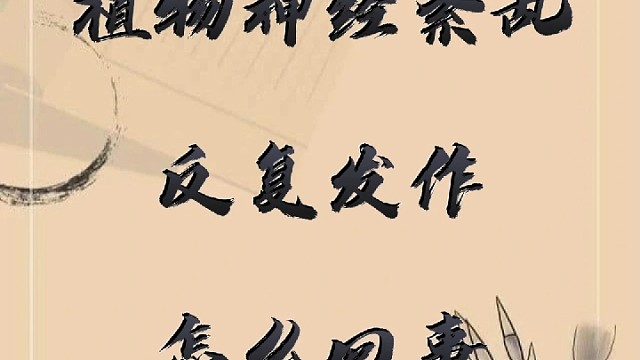 植物神经紊乱
反复发作
怎么回事